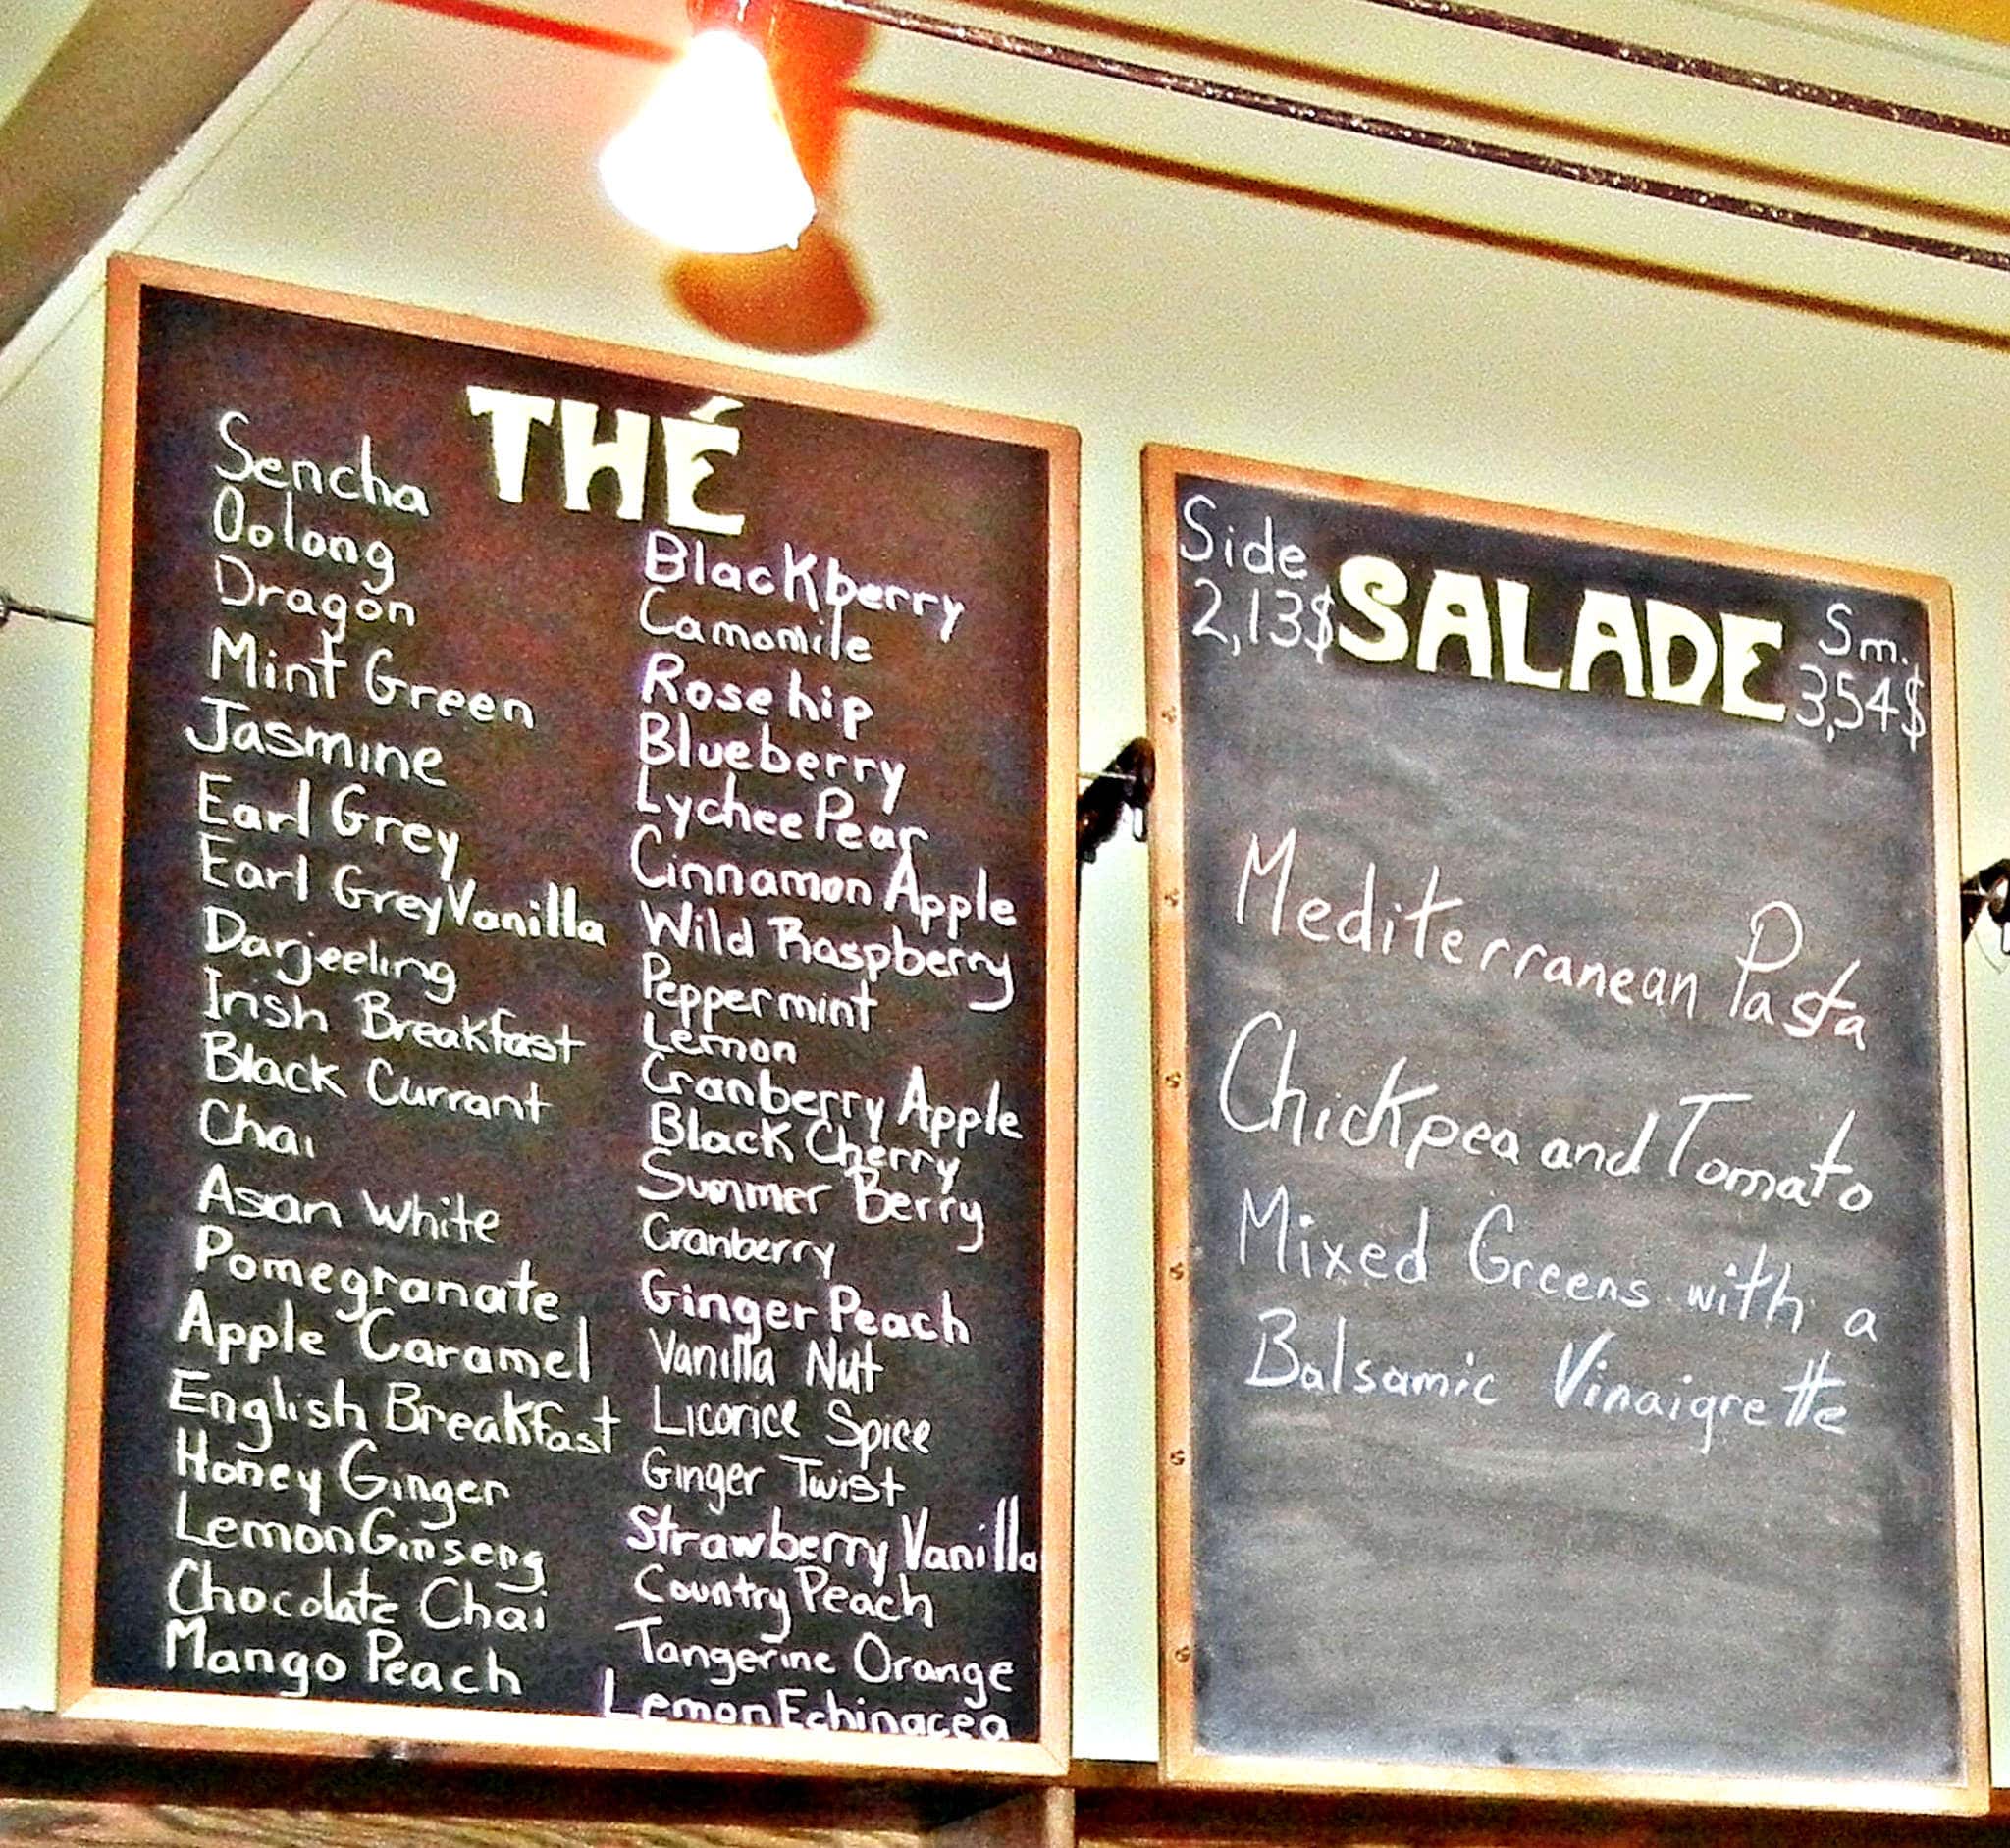 THÉ
Sencha
Oolong
Dragon
Mint Green
Jasmine
Earl Grey
Earl Grey Vanilla
Darjeeling
Irish Breakfast
Black Currant
Chai
Asian White
Pomegranate
Apple Caramel
English Breakfast
Honey Ginger
Lemon Ginseng
Chocolate Chai
Mango Peach
Blackberry
Camomile
Rosehip
Blueberry
Lychee Pear
Cinnamon Apple
Wild Raspberry
Peppermint
Lemon
Cranberry Apple
Black Cherry
Summer Berry
Cranberry
Ginger Peach
Vanilla Nut
Licorice Spice
Ginger Twist
Strawberry Vanilla
Country Peach
Tangerine Orange
Lemon Echinacea
Side
2,13$
SALADE
Sm.
3,54$
Mediterranean Pasta
Chickpea and Tomato
Mixed Greens with a
Balsamic Vinaigrette